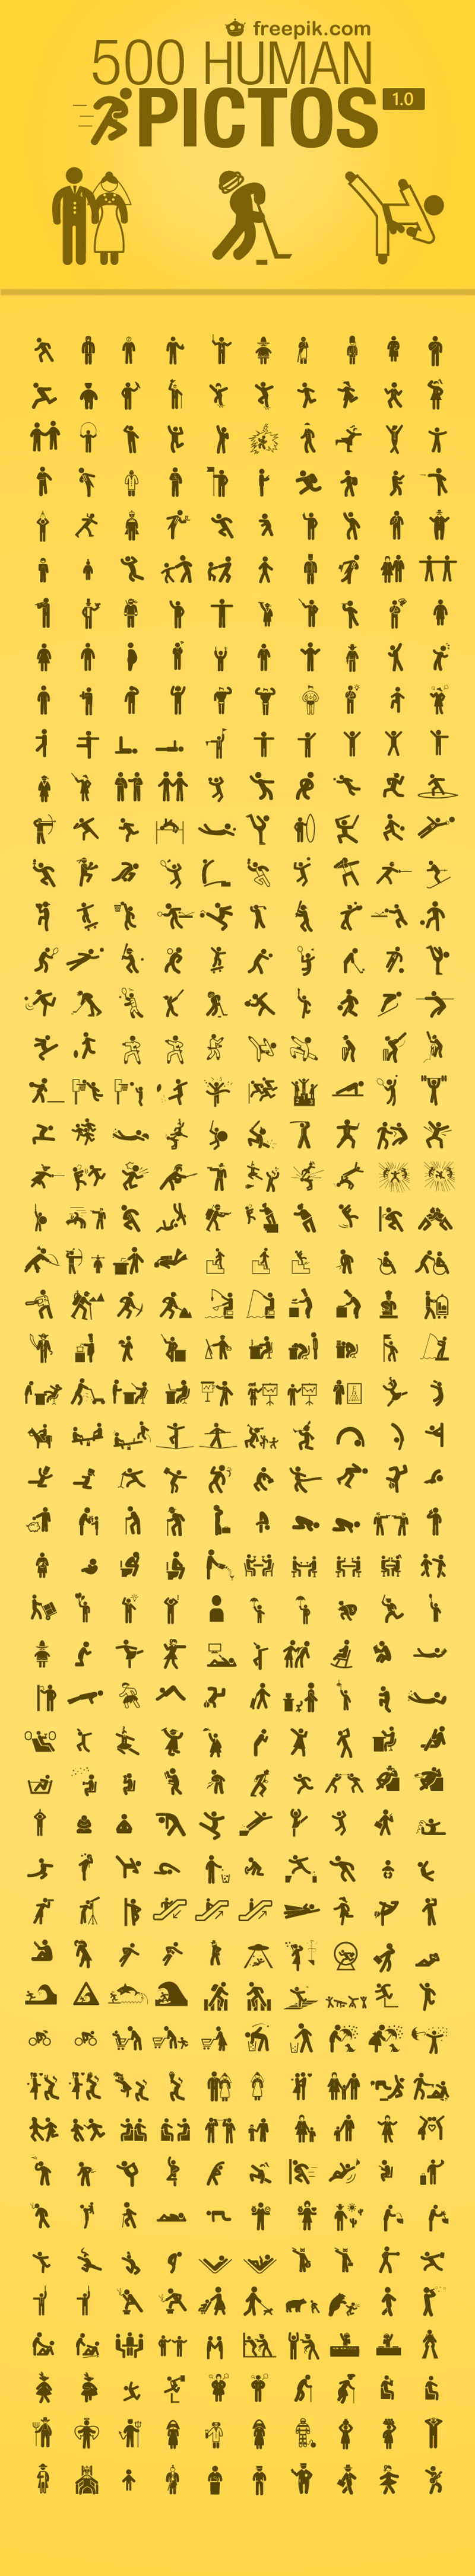 freepik.com
500 HUMAN
PICTOS 1.0